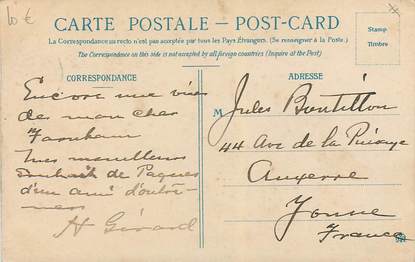 10 €
CARTE POSTALE – POST-CARD
La Correspondance au recto n'est pas acceptée par tous les Pays Étrangers. (Se renseigner à la Poste.)
The Correspondence on this side is not accepted by all foreign countries (Inquire at the Post)
Stamp
Timbre
CORRESPONDANCE
ADRESSE
Encore une vue
de mon cher
Farnham
Mes meilleurs
souhaits de Paques
d'un ami d'outre-
mers
H Girard
M Jules Boutillon
44 Ave de la
Auxerre
Yonne
France